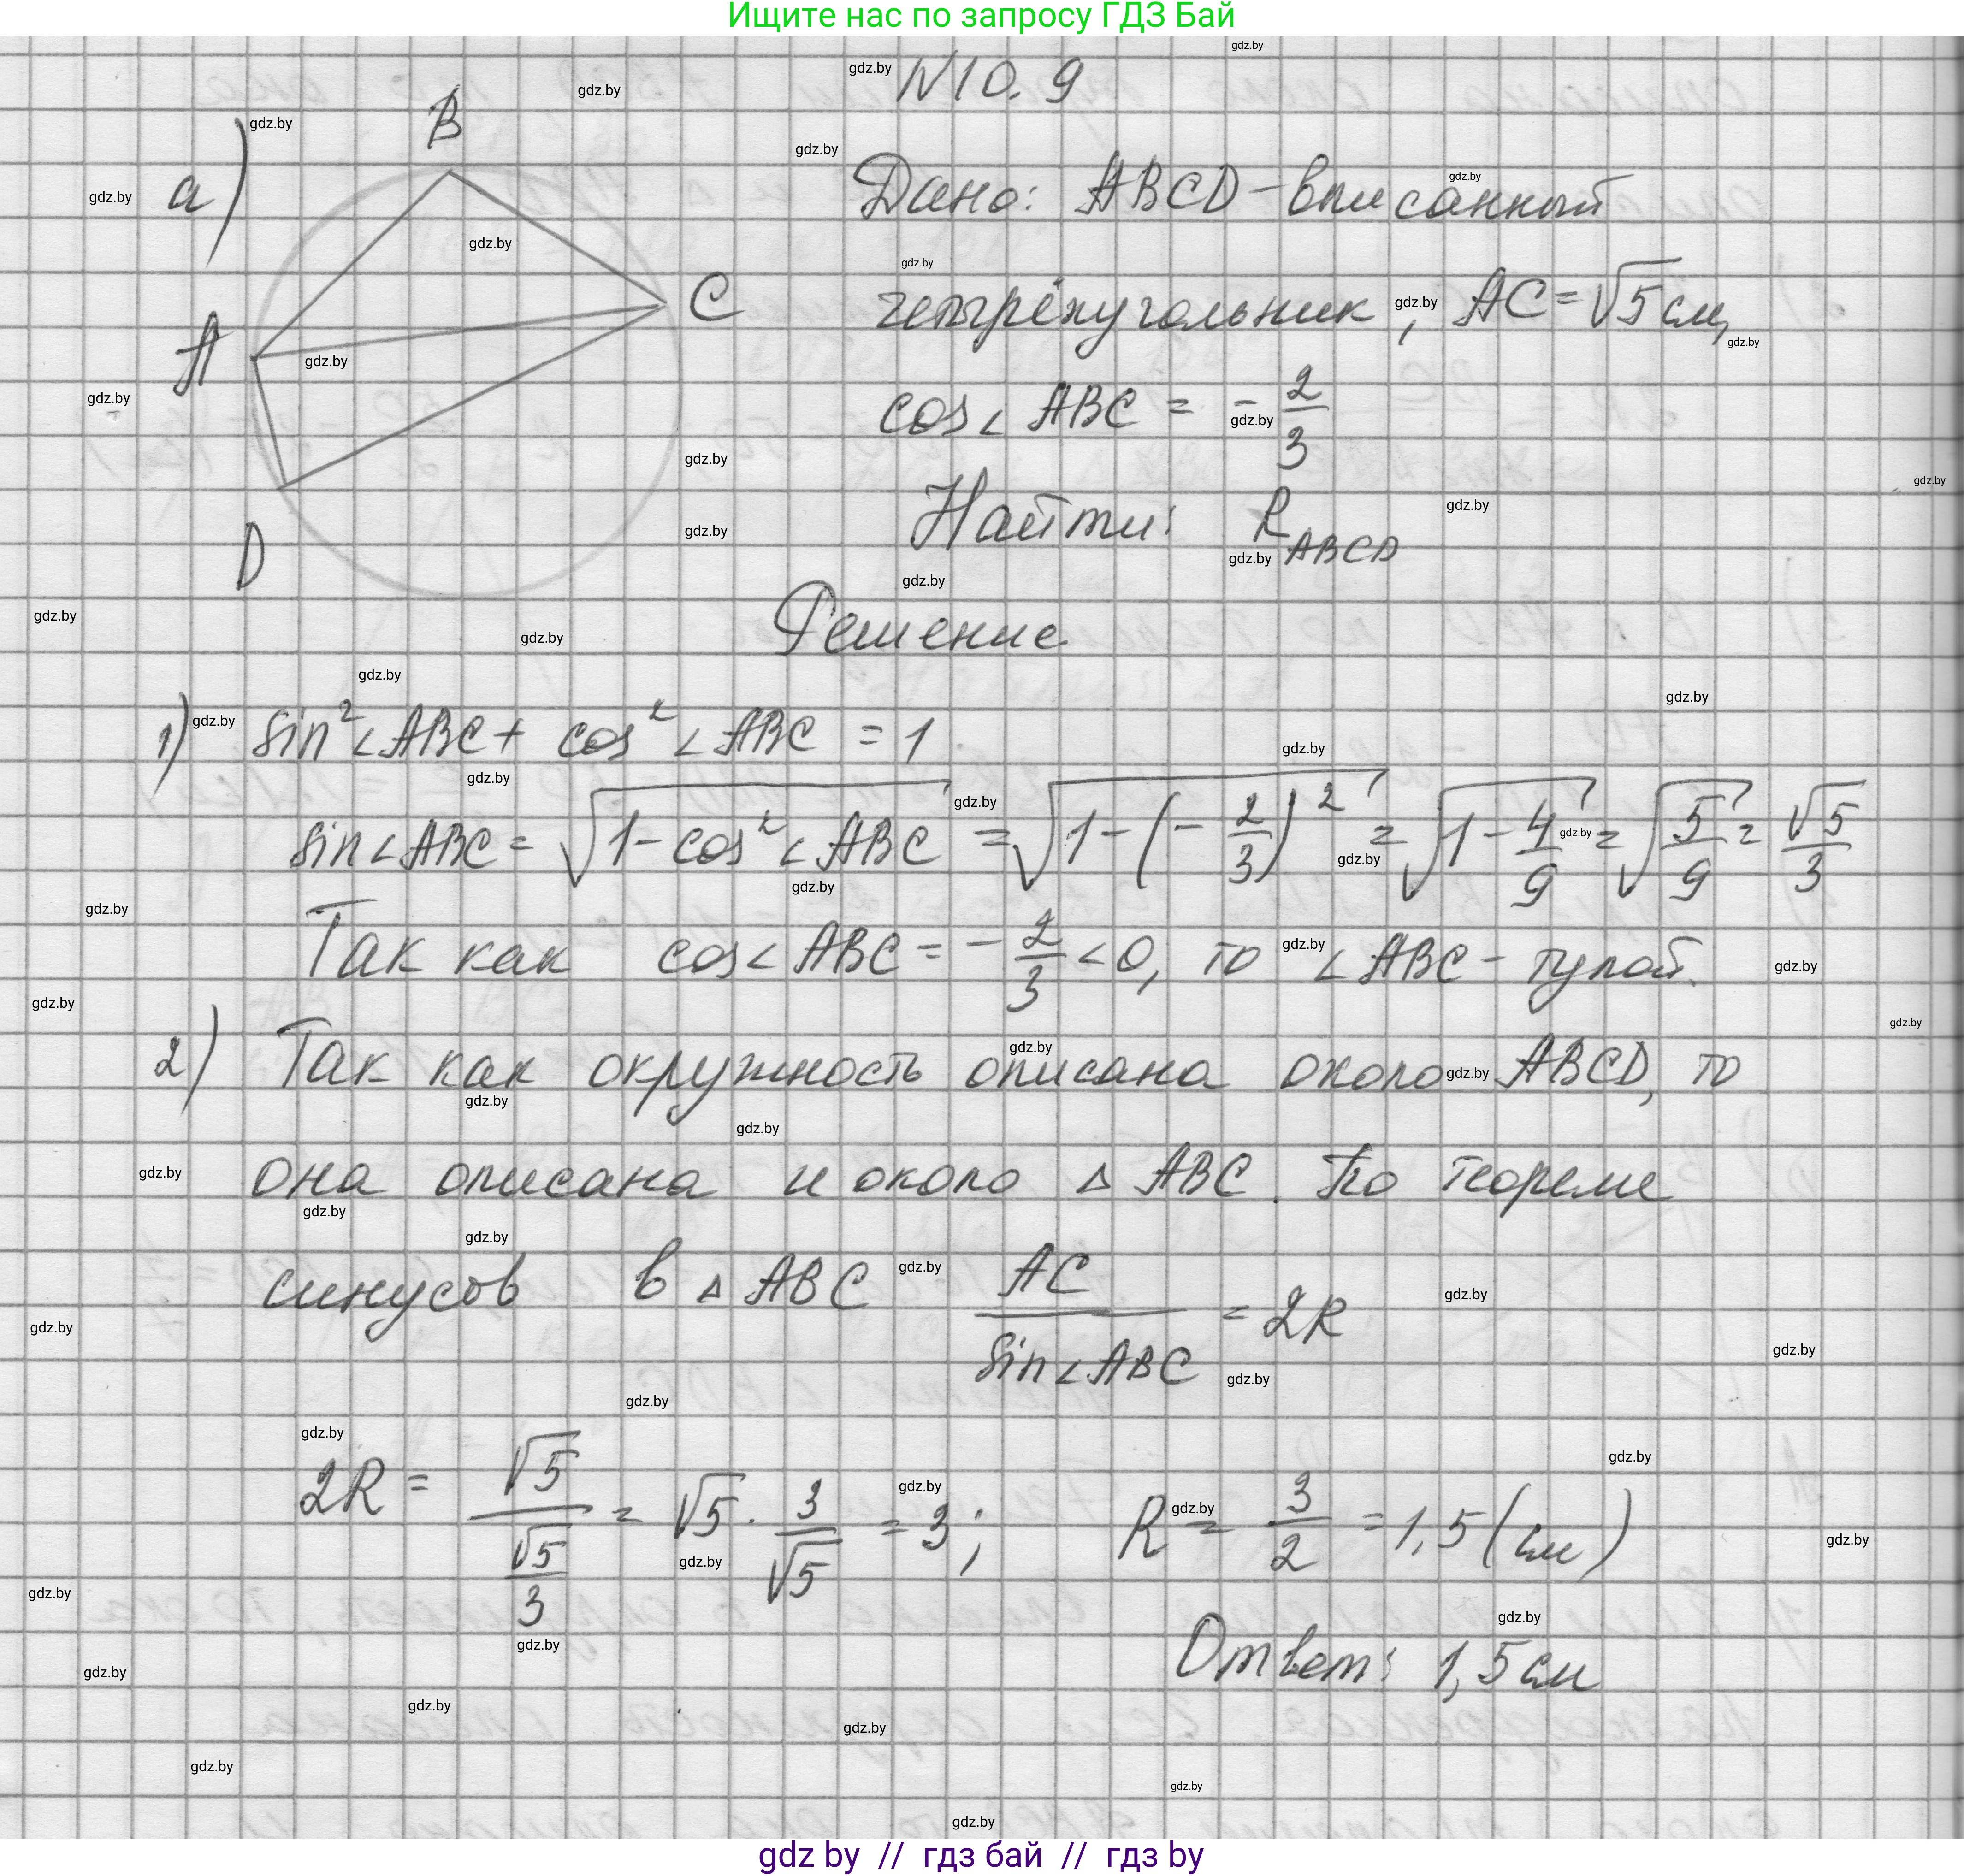 Ищите нас по запросу ГДЗ Бай
N10.9
а)
B
A
C
D
Дано: ABCD - вписанный
четырёхугольник, AC = √5 см,
cos∠ABC = -2/3
Найти: R_ABCD
Решение
1) sin²∠ABC + cos²∠ABC = 1
sin∠ABC = √(1 - cos²∠ABC) = √(1 - (-2/3)²) = √(1 - 4/9) = √(5/9) = √5/3
Так как cos∠ABC = -2/3 < 0, то ∠ABC - тупой.
2) Так как окружность описана около ABCD, то
она описана и около △ABC. По теореме
синусов в △ABC AC/sin∠ABC = 2R
2R = √5/(√5/3) = √5 · 3/√5 = 3; R = 3/2 = 1,5 (см)
Ответ: 1,5 см
gdz by // гдз бай // гдз by